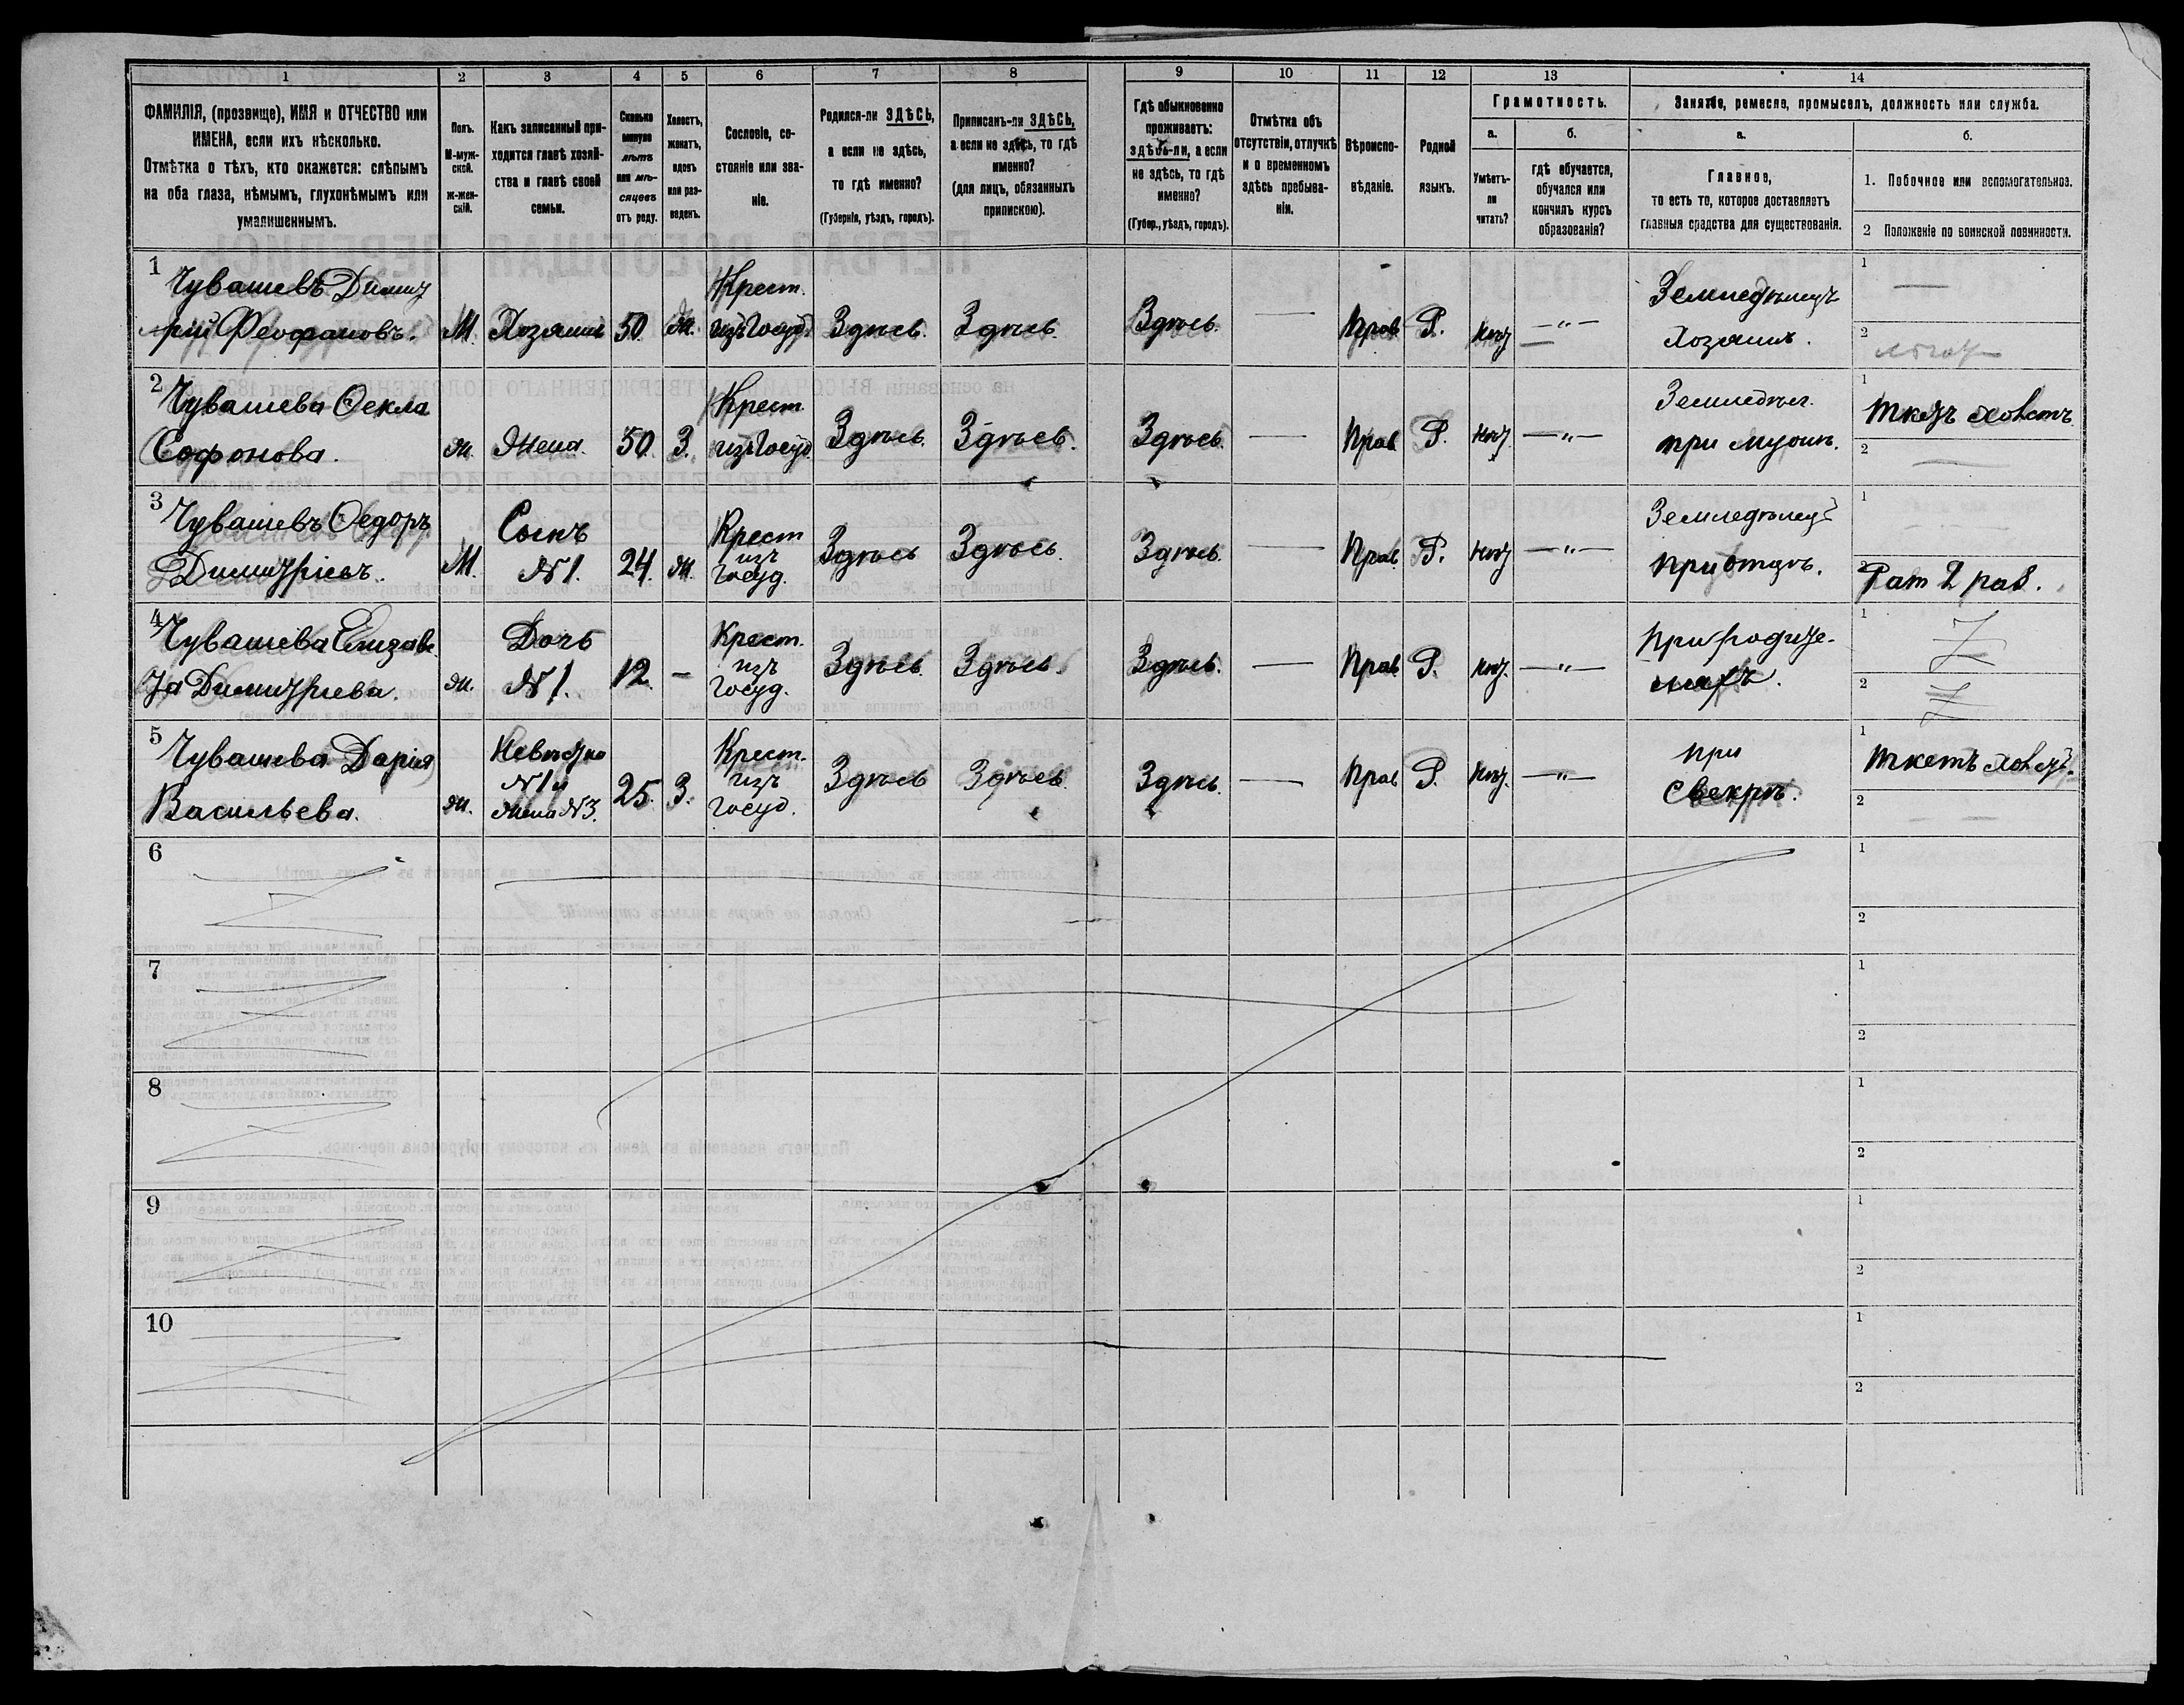 1 2 3 4 5 6 7 8 9 10 11 12 13 14
ФАМИЛІЯ, (прозвище), ИМЯ и ОТЧЕСТВО или
ИМЕНА, если ихъ нѣсколько.
Отмѣтка о тѣхъ, кто окажется: слѣпымъ
на оба глаза, нѣмымъ, глухонѣмымъ или
умалишеннымъ.
Полъ.
М-муж-
ской.
ж-жен-
скій.
Какъ записанный при-
ходится главѣ хозяй-
ства и главѣ своей
семьи.
Сколько
минуло
лѣтъ
или мѣ-
сяцевъ
отъ роду.
Холостъ,
женатъ,
вдовъ
или раз-
веденъ.
Сословіе, со-
стояніе или зва-
ніе.
Родился-ли ЗДѢСЬ,
а если не здѣсь,
то гдѣ именно?
(Губернія, уѣздъ, городъ).
Приписанъ-ли ЗДѢСЬ,
а если не здѣсь, то гдѣ
именно?
(для лицъ, обязанныхъ
припискою).
Гдѣ обыкновенно
проживаетъ:
здѣсь-ли, а если
не здѣсь, то гдѣ
именно?
(Губер., уѣздъ, городъ).
Отмѣтка объ
отсутствіи, отлучкѣ
и о временномъ
здѣсь пребыва-
ніи.
Вѣроиспо-
вѣданіе.
Родной
языкъ.
Грамотность.
а.
Умѣетъ-
ли
читать?
б.
гдѣ обучается,
обучался или
кончилъ курсъ
образованія?
Занятіе, ремесло, промыселъ, должность или служба.
а.
Главное,
то есть то, которое доставляетъ
главныя средства для существованія.
б.
1. Побочное или вспомогательное.
2 Положеніе по воинской повинности.
1
Чувашевъ Димит
рій Феофановъ.
М.
Хозяинъ
50.
ж.
Крест.
изъ Госуд.
Здѣсь.
Здѣсь.
Здѣсь.
—
Прав
Р.
нѣт
—"—
Земледѣлецъ
Хозяинъ.
1 —
2
2
Чувашева Ѳекла
Софонова.
ж.
Жена.
50.
З.
Крест.
изъ Госуд.
Здѣсь.
Здѣсь.
Здѣсь.
—
Прав
Р.
нѣт.
—"—
Земледѣл.
при мужѣ.
1
2 —
3
Чувашевъ Ѳедоръ
Димитріевъ.
М.
Сынъ
№1.
24.
ж.
Крест
изъ
Госуд.
Здѣсь
Здѣсь.
Здѣсь.
—
Прав.
Р.
нѣт
—"—
Земледѣлецъ
при отцѣ.
1 — —
2 Рат 2 раз.
4
Чувашева Елизаве
та Димитріева.
ж.
Дочь
№1.
12.
—
Крест.
изъ
Госуд.
Здѣсь.
Здѣсь.
Здѣсь.
—
Прав
Р.
нѣт.
—"—
При родите-
ляхъ.
1
2
5
Чувашева Дарія
Васильева.
ж.
Невѣстка
№1 и
жена №3.
25.
З.
Крест.
изъ
госуд.
Здѣсь
Здѣсь.
Здѣсь.
—
Прав
Р.
нѣт.
—"—
при
Свекрѣ.
1 Ткетъ холстъ.
2 — —
6
1
2
7
1
2
8
1
2
9
1
2
10
1
2